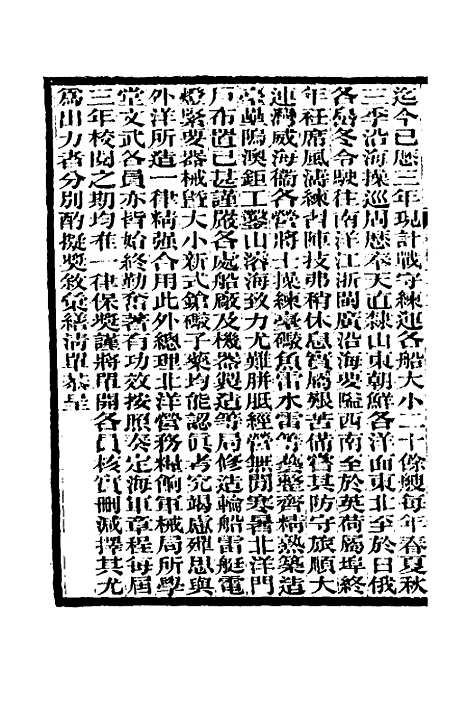 迄今已歷三年現計戰守練運各船大小二十餘艘每年春夏秋
三季沿海操巡周歷奉天直隸山東朝鮮各洋面東北至於日俄
各島冬令駛往南洋江浙閩廣沿海要隘西南至於英荷屬埠終
年衽席風濤練習陣技弗稍休息實屬艱苦備嘗其防守旅順大
連灣威海衞各營將士操練臺礮魚雷水雷等藝整齊精熟築造
臺壘隖澳鉅工鑿山濬海致力尤難胼胝經營無間寒暑北洋門
戶布置已甚謹嚴各處船廠及機器製造等局修造輪船雷艇電
燈緊要器械曁大小新式鎗礮子藥均能認眞考究竭慮殫思與
外洋所造一律精強合用此外總理北洋營務糧餉軍械局所學
堂文武各員亦皆始終勤奮著有功效按照奏定海軍章程每屆
三年校閱之期均准一律保奬謹將單開各員核實刪減擇其尤
爲出力者分別酌擬奬敘彙繕淸單恭呈